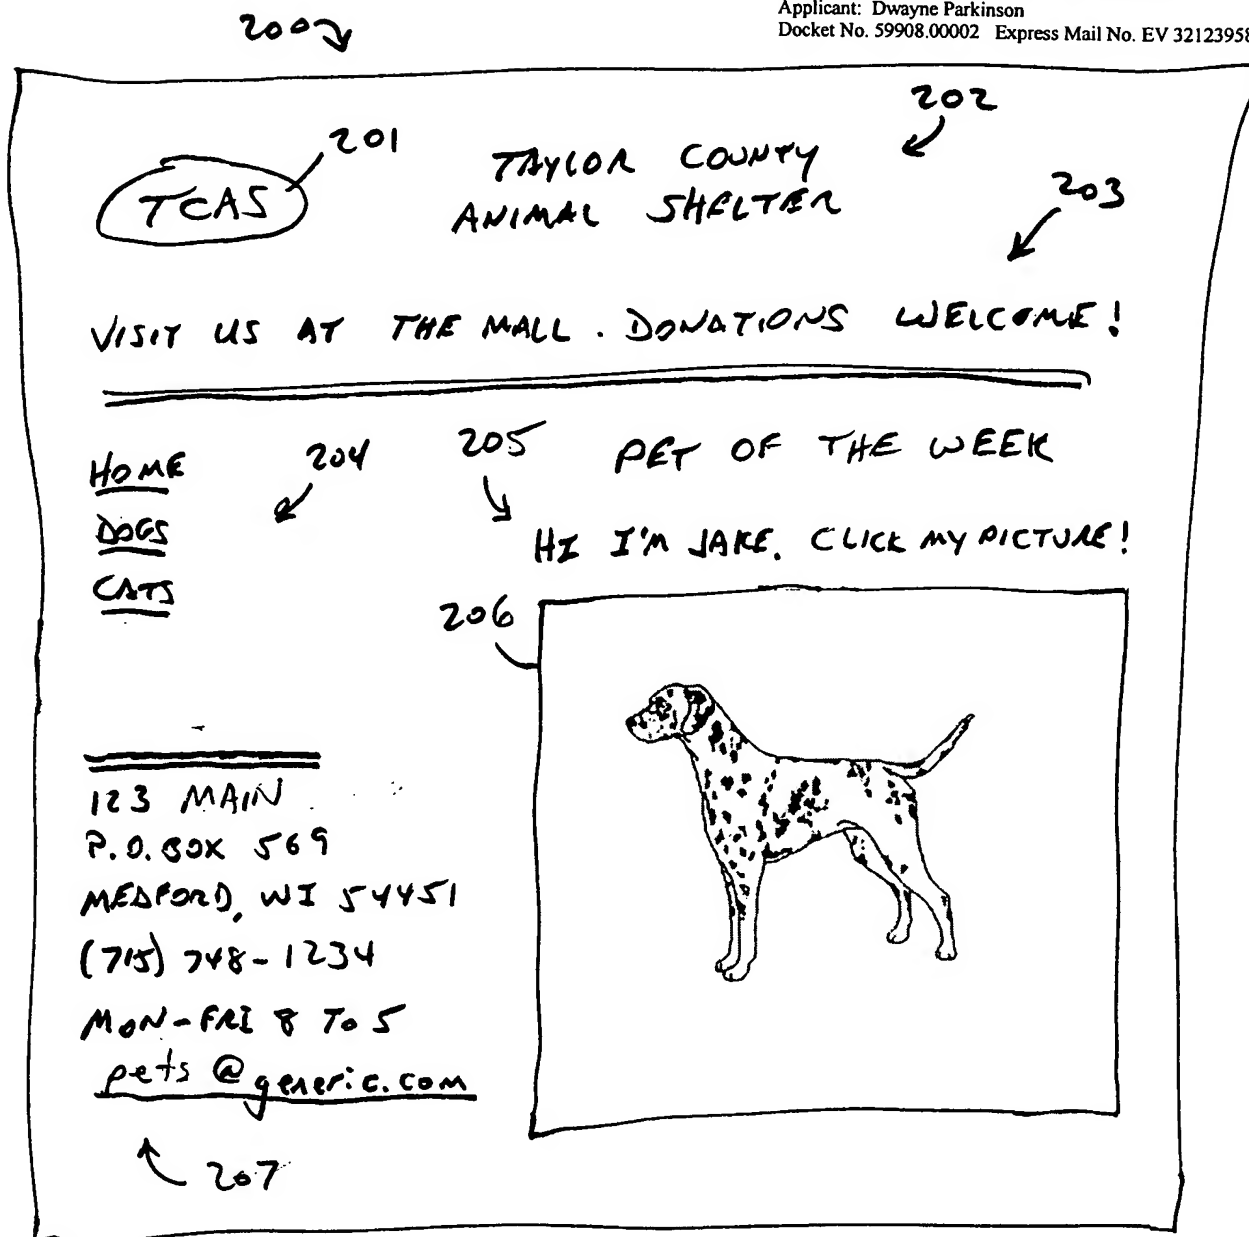 Applicant: Dwayne Parkinson
Docket No. 59908.00002 Express Mail No. EV 32123958
200
201
202
TCAS
TAYLOR COUNTY
ANIMAL SHELTER
203
VISIT US AT THE MALL. DONATIONS WELCOME!
HOME
204
205
PET OF THE WEEK
DOGS
HI I'M JAKE. CLICK MY PICTURE!
CATS
206
123 MAIN
P.O. BOX 569
MEDFORD, WI 54451
(715) 748-1234
MON-FRI 8 TO 5
pets@generic.com
207